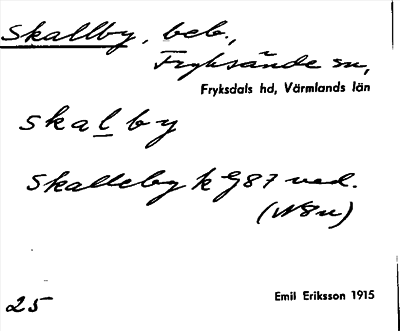 Skallby, beb.,
Fryksände sn,
Fryksdals hd, Värmlands län
skalby
Skalleby k G87 ved.
(NSn)
25
Emil Eriksson 1915